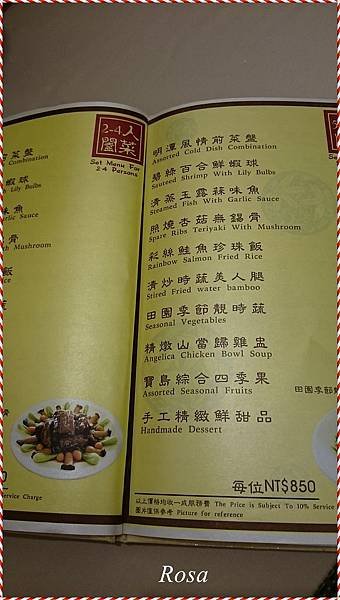 2-4人
闔菜
Set Menu For
2-4 Persons
前菜盤
Combination
蝦球
Lily Bulbs
味魚
Garlic Sauce
骨
Mushroom
飯
Rice
Service Charge
明潭風情前菜盤
Assorted Cold Dish Combination
翡綠百合鮮蝦球
Sauteed shrimp With Lily Bulbs
清蒸玉露蒜味魚
Steamed Fish With Garlic Sauce
照燒杏菇無錫骨
Spare Ribs Teriyaki With Mushroom
彩絲鮭魚珍珠飯
Rainbow Salmon Fried Rice
清炒時蔬美人腿
Stired Fried water bamboo
田園季節靚時蔬
Seasonal Vegetables
精燉山當歸雞盅
Angelica Chicken Bowl Soup
寶島綜合四季果
Assorted Seasonal Fruits
手工精緻鮮甜品
Handmade Dessert
每位NT$850
以上價格均收一成服務費 The Price is Subject To 10% Service
圖片僅供參考 Picture for reference
田園季節
Rosa